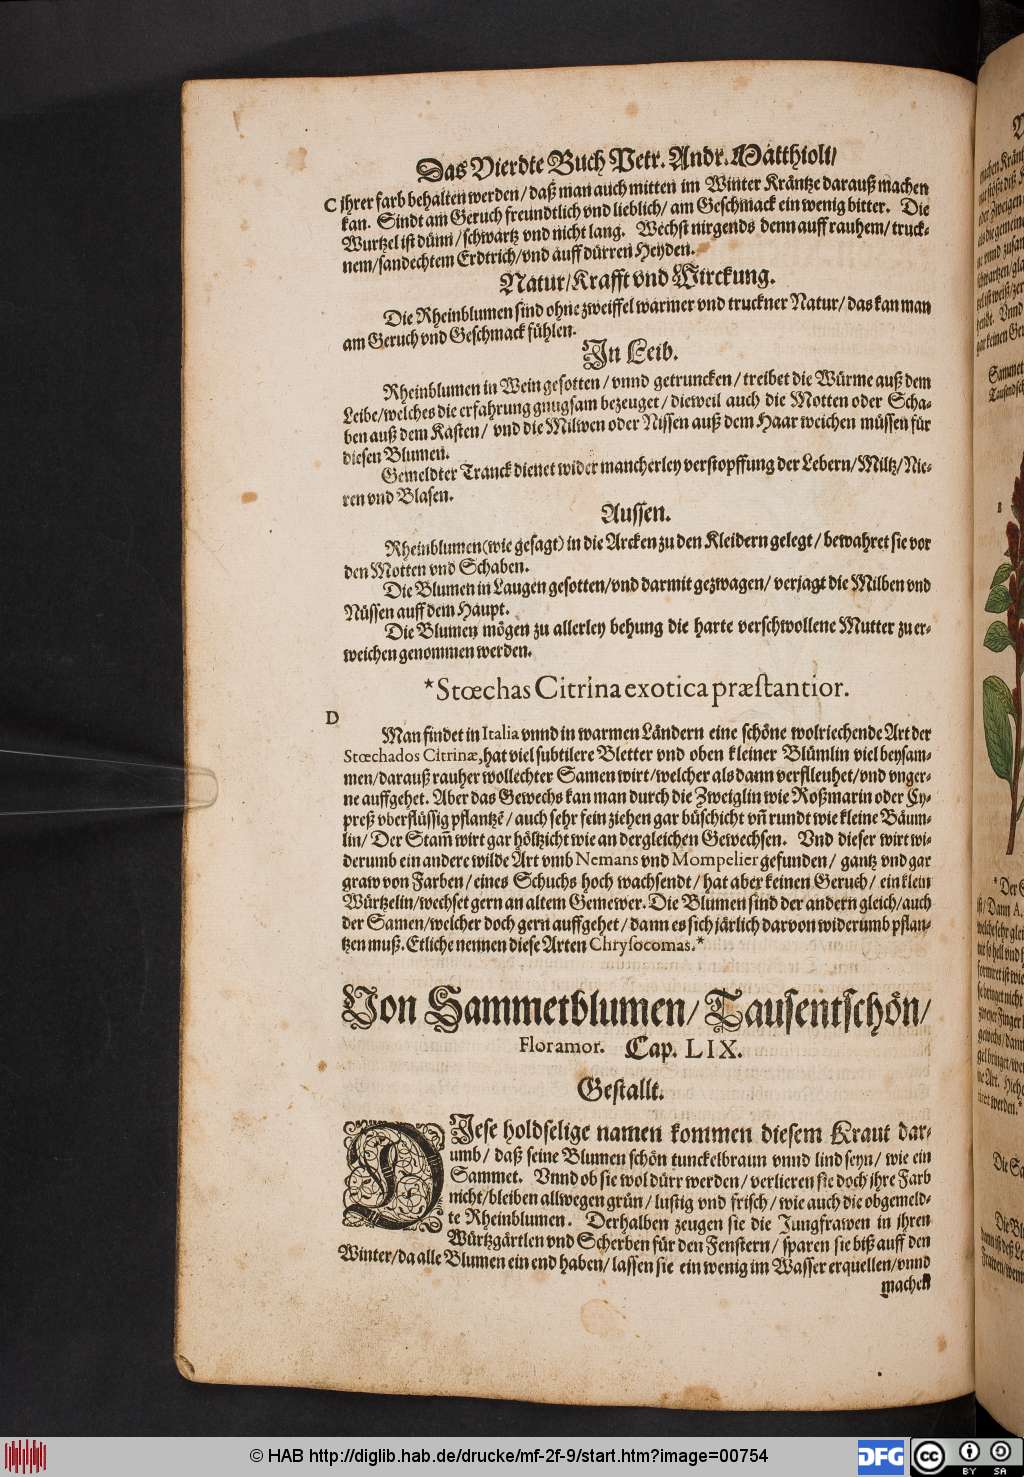 Das Vierdte Buch Petr. Andr. Matthioli/
C ihrer farb behalten werden/ daß man auch mitten im Winter Kräntze darauß machen
kan. Sindt am Geruch freundtlich vnd lieblich/ am Geschmack ein wenig bitter. Die
Wurtzel ist dünn/ schwartz vnd nicht lang. Wechst nirgends denn auff rauhem/ truck-
nem/ sandechtem Erdtrich/ vnd auff dürren Heyden.
Natur/ Krafft vnd Wirckung.
Die Rheinblumen sind ohne zweiffel warmer vnd truckner Natur/ das kan man
am Geruch vnd Geschmack fühlen.
In Leib.
Rheinblumen in Wein gesotten/ vnnd getruncken/ treibet die Würme auß dem
Leibe/ welches die erfahrung gnugsam bezeuget/ dieweil auch die Motten oder Scha-
ben auß dem Kasten/ vnd die Milwen oder Nissen auß dem Haar weichen müssen für
diesen Blumen.
Gemeldter Tranck dienet wider mancherley verstopffung der Lebern/ Miltz/ Nie-
ren vnd Blasen.
Aussen.
Rheinblumen (wie gesagt) in die Arcken zu den Kleidern gelegt/ bewahret sie vor
den Motten vnd Schaben.
Die Blumen in Laugen gesotten/ vnd darmit gezwagen/ verjagt die Milben vnd
Nüssen auff dem Haupt.
Die Blumen mögen zu allerley behung die harte verschwollene Mutter zu er-
weichen genommen werden.
*Stœchas Citrina exotica præstantior.
D
Man findet in Italia vnnd in warmen Ländern eine schöne wolriechende Art der
Stœchados Citrinæ, hat viel subtilere Bletter vnd oben kleiner Blümlin viel beysam-
men/ darauß rauher wollechter Samen wirt/ welcher als dann verfleuhet/ vnd vnger-
ne auffgehet. Aber das Gewechs kan man durch die Zweiglin wie Roßmarin oder Cy-
preß vberflüssig pflantzē/ auch sehr fein ziehen gar büschicht vñ rundt wie kleine Bäum-
lin/ Der Stam̄ wirt gar höltzicht wie an dergleichen Gewechsen. Vnd dieser wirt wi-
derumb ein andere wilde Art vmb Nemans vnd Mompelier gefunden/ gantz vnd gar
graw von Farben/ eines Schuchs hoch wachsendt/ hat aber keinen Geruch/ ein klein
Würtzelin/ wechset gern an altem Gemewer. Die Blumen sind der andern gleich/ auch
der Samen/ welcher doch gern auffgehet/ dann es sich järlich darvon widerumb pflan-
tzen muß. Etliche nennen diese Arten Chrysocomas.*
Von Sammetblumen/ Tausentschön/
Floramor. Cap. LIX.
Gestallt.
DIese holdselige namen kommen diesem Kraut dar-
umb/ daß seine Blumen schön tunckelbraun vnnd lind seyn/ wie ein
Sammet. Vnnd ob sie wol dürr werden/ verlieren sie doch ihre Farb
nicht/ bleiben allwegen grün/ lustig vnd frisch/ wie auch die obgemeld-
te Rheinblumen. Derhalben zeugen sie die Jungfrawen in ihren
Würtzgärtlen vnd Scherben für den Fenstern/ sparen sie biß auff den
Winter/ da alle Blumen ein end haben/ lassen sie ein wenig im Wasser erquellen/ vnnd
machen
© HAB http://diglib.hab.de/drucke/mf-2f-9/start.htm?image=00754
DFG
cc BY SA